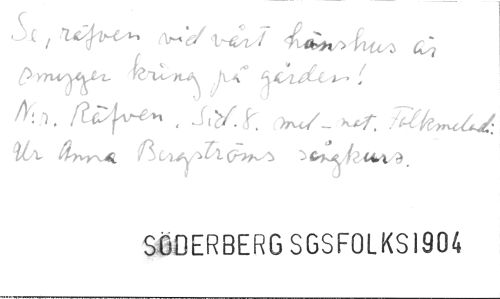 Se, räfven vid vårt hönshus är
smyger kring på gården!
N:r. Räfven. Sid. 8. med-not. Folkmelodi.
Ur Anna Bergströms sångkurs.
SÖDERBERG SGSFOLKS1904